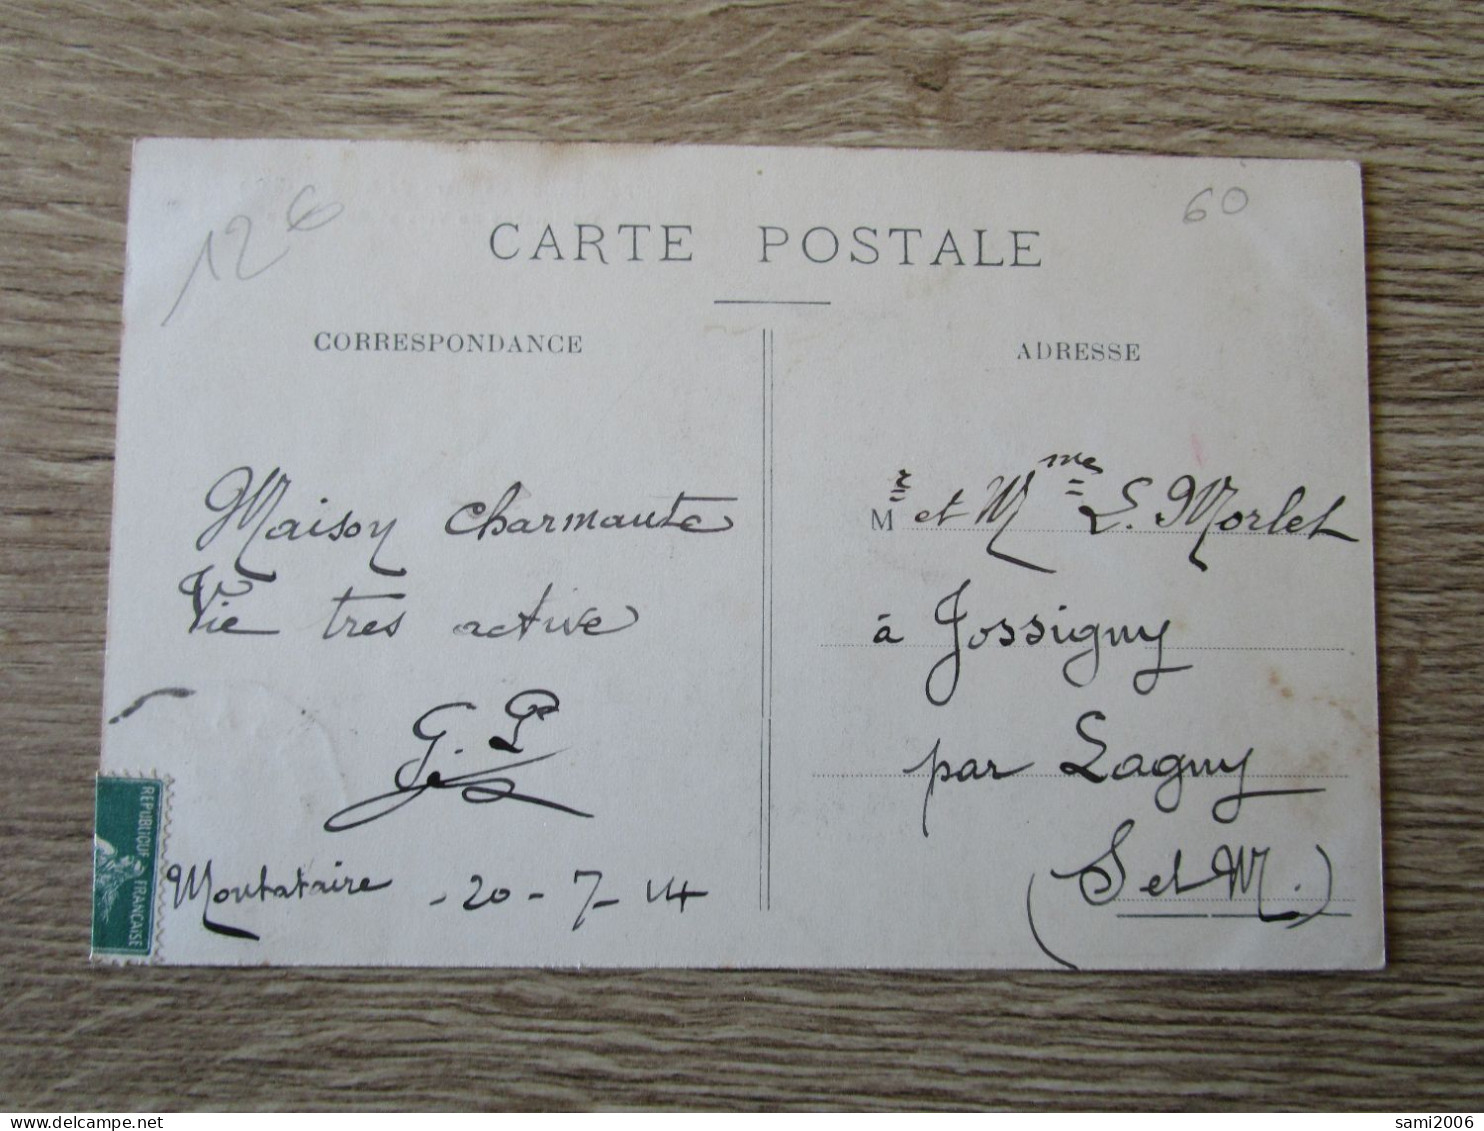 12€
60
CARTE POSTALE
CORRESPONDANCE
ADRESSE
Maison charmante
Vie tres active
G. P
Montataire - 20 - 7 - 14
Mr et Mme L. Morlet
à Jossigny
par Lagny
(S et M.)
REPUBLIQUE FRANÇAISE
sami2006